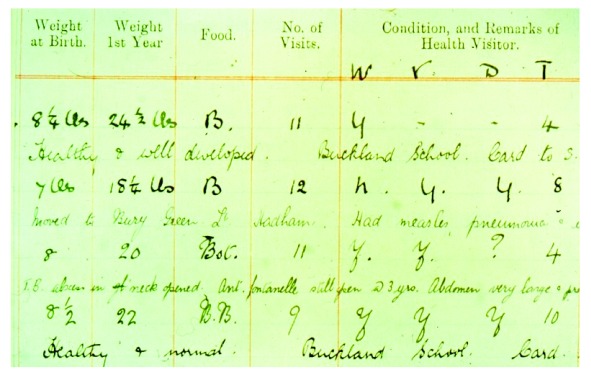 Weight at Birth. Weight 1st Year Food. No. of Visits. Condition, and Remarks of Health Visitor.
W V. D T
8¼ lbs 24½ lbs B. 11 Y - - 4
Healthy & well developed. Buckland School. Card to S.
7 lbs 18¼ lbs B 12 n. Y. Y. 8
Moved to Bury Green Lt Hadham. Had measles, pneumonia &
8 20 Bot. 11 Y. Y. ? 4
T.B. absces in neck opened. Ant. fontanelle still open @ 3 yrs. Abdomen very large &
8½ 22 B.B. 9 Y Y. Y 10
Healthy & normal. Buckland School. Card.